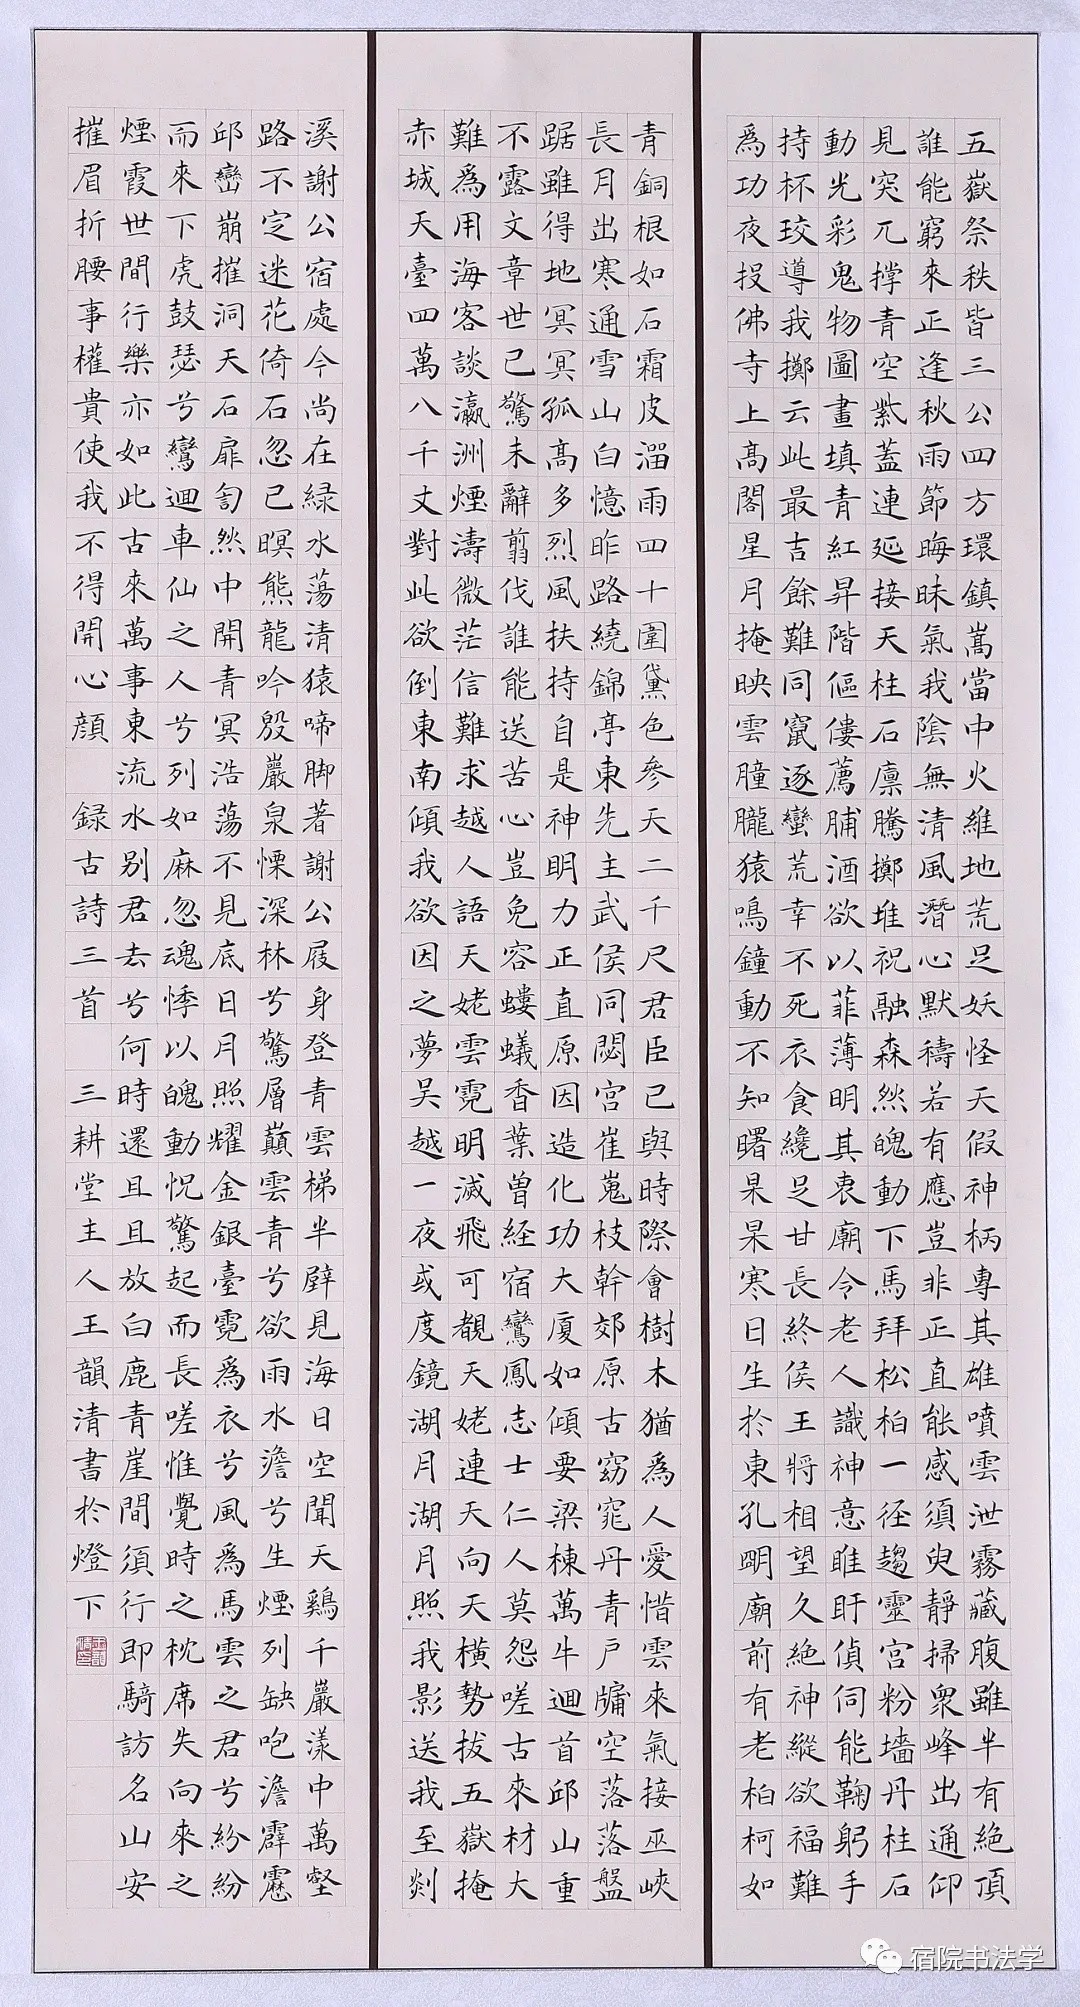 五嶽祭秩皆三公四方環鎮嵩當中火維地荒足妖怪天假神柄專其雄噴雲泄霧藏腹雖半有絕頂
誰能窮來正逢秋雨節晦昧氣我陰無清風潛心默禱若有應豈非正直能感須臾靜掃衆峰出通仰
見突兀撐青空紫蓋連延接天柱石廩騰擲堆祝融森然魄動下馬拜松柏一徑趨靈宮粉墻丹柱石
動光彩鬼物圖畫填青紅昇階傴僂薦脯酒欲以菲薄明其衷廟令老人識神意睢盱偵伺能鞠躬手
持杯珓導我擲云此最吉餘難同竄逐蠻荒幸不死衣食纔足甘長終侯王將相望久絕神縱欲福難
爲功夜投佛寺上高閣星月掩映雲朣朧猿鳴鐘動不知曙杲杲寒日生於東孔明廟前有老柏柯如
青銅根如石霜皮溜雨四十圍黛色參天二千尺君臣已與時際會樹木猶爲人愛惜雲來氣接巫峽
長月出寒通雪山白憶昨路繞錦亭東先主武侯同閟宮崔嵬枝幹郊原古窈窕丹青戶牖空落落盤
踞雖得地冥冥孤高多烈風扶持自是神明力正直原因造化功大厦如傾要梁棟萬牛迴首邱山重
不露文章世已驚未辭翦伐誰能送苦心豈免容螻蟻香葉曾經宿鸞鳳志士仁人莫怨嗟古來材大
難爲用海客談瀛洲煙濤微茫信難求越人語天姥雲霓明滅飛可覩天姥連天向天橫勢拔五嶽掩
赤城天臺四萬八千丈對此欲倒東南傾我欲因之夢吳越一夜或度鏡湖月湖月照我影送我至剡
溪謝公宿處今尚在綠水蕩清猿啼脚著謝公屐身登青雲梯半壁見海日空聞天鷄千巖漾中萬壑
路不定迷花倚石忽已暝熊龍吟殷巖泉慄深林兮驚層巔雲青兮欲雨水澹兮生煙列缺咆澹霹靂
邱巒崩摧洞天石扉訇然中開青冥浩蕩不見底日月照耀金銀臺霓爲衣兮風爲馬雲之君兮紛紛
而來下虎鼓瑟兮鸞迴車仙之人兮列如麻忽魂悸以魄動怳驚起而長嗟惟覺時之枕席失向來之
煙霞世間行樂亦如此古來萬事東流水別君去兮何時還且且放白鹿青崖間須行即騎訪名山安
摧眉折腰事權貴使我不得開心顔 録古詩三首 三耕堂主人王韻清書於燈下
宿院书法学